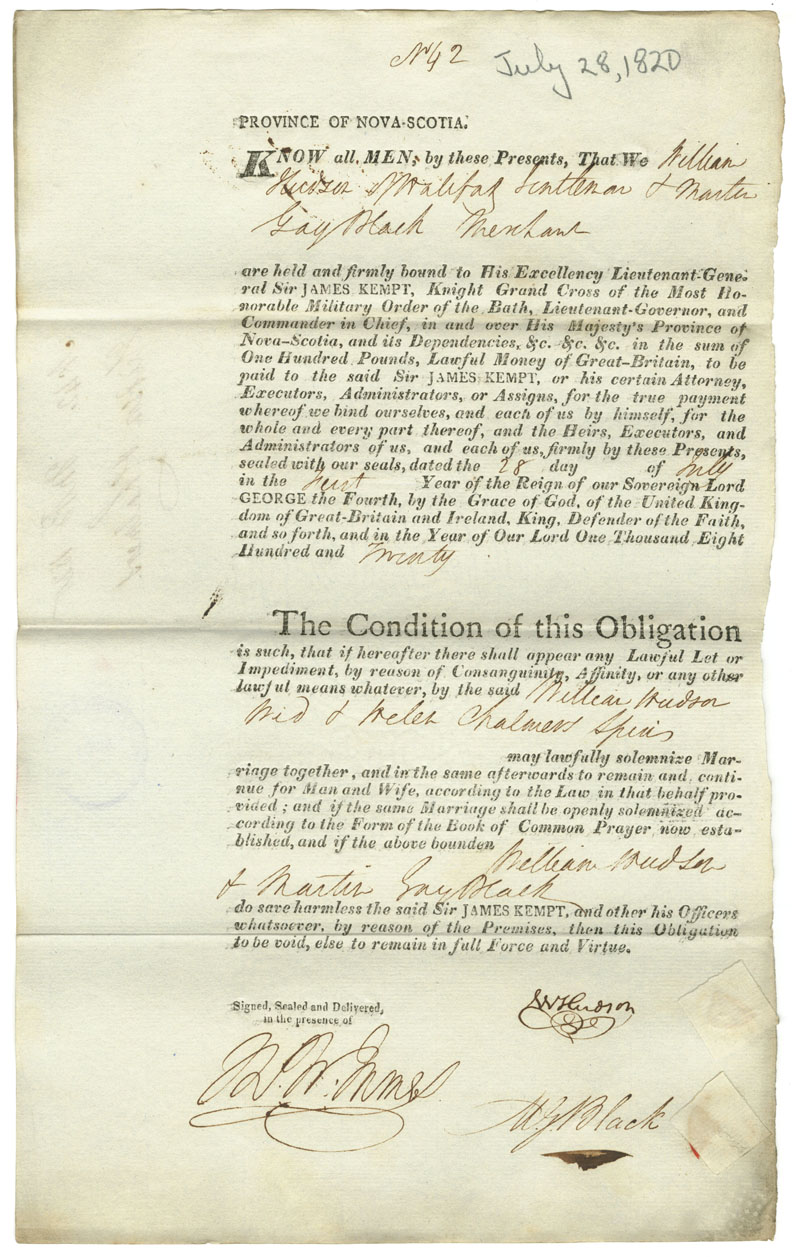 No 42 July 28, 1820
PROVINCE OF NOVA-SCOTIA.
KNOW all MEN, by these Presents, That We William
Hudson of Halifax Gentleman & Martin
Gay Black Merchant
are held and firmly bound to His Excellency Lieutenant-Gene-
ral Sir JAMES KEMPT, Knight Grand Cross of the Most Ho-
norable Military Order of the Bath, Lieutenant-Governor, and
Commander in Chief, in and over His Majesty's Province of
Nova-Scotia, and its Dependencies, &c. &c. &c. in the sum of
One Hundred Pounds, Lawful Money of Great-Britain, to be
paid to the said Sir JAMES KEMPT, or his certain Attorney,
Executors, Administrators, or Assigns, for the true payment
whereof we bind ourselves, and each of us by himself, for the
whole and every part thereof, and the Heirs, Executors, and
Administrators of us, and each of us, firmly by these Presents,
sealed with our seals, dated the 28 day of July
in the first Year of the Reign of our Sovereign Lord
GEORGE the Fourth, by the Grace of God, of the United King-
dom of Great-Britain and Ireland, King, Defender of the Faith,
and so forth, and in the Year of Our Lord One Thousand Eight
Hundred and Twenty
The Condition of this Obligation
is such, that if hereafter there shall appear any Lawful Let or
Impediment, by reason of Consanguinity, Affinity, or any other
lawful means whatever, by the said William Hudson
Wid & Helen Chalmers Spin
may lawfully solemnize Mar-
riage together, and in the same afterwards to remain and conti-
nue for Man and Wife, according to the Law in that behalf pro-
vided; and if the same Marriage shall be openly solemnized ac-
cording to the Form of the Book of Common Prayer now esta-
blished, and if the above bounden William Hudson
& Martin Gay Black
do save harmless the said Sir JAMES KEMPT, and other his Officers
whatsoever, by reason of the Premises, then this Obligation
to be void, else to remain in full Force and Virtue.
Signed, Sealed and Delivered,
in the presence of
Wm Hudson
M G Black